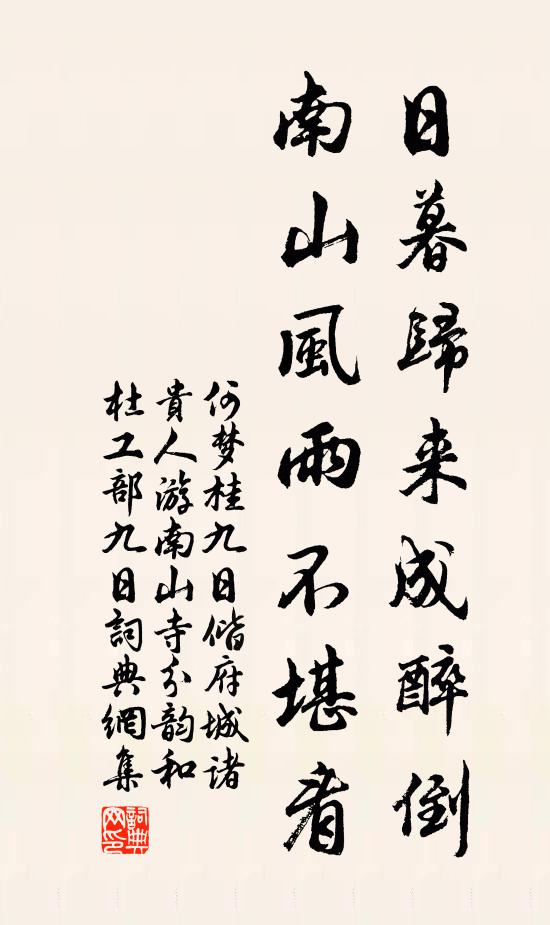 日暮歸来成醉倒
南山風雨不堪看
何梦桂九日偕府城诸
貴人游南山寺分韵和
杜工部九日詞典網集
詞典网印